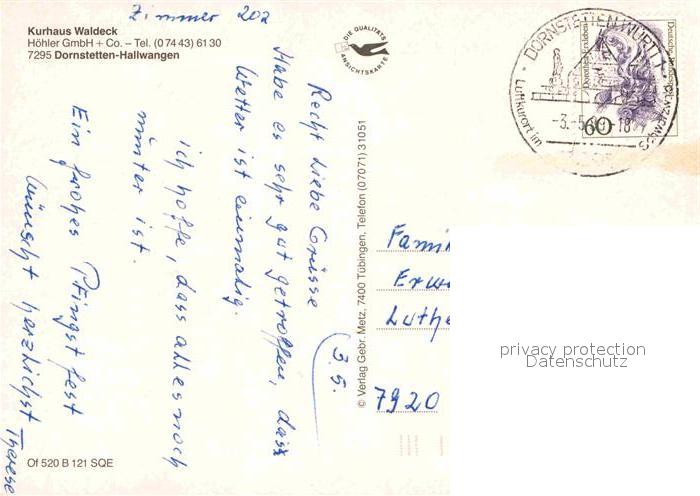 Zimmer 202
Kurhaus Waldeck
Höhler GmbH + Co. – Tel. (0 74 43) 61 30
7295 Dornstetten-Hallwangen
DIE QUALITÄTS
ANSICHTSKARTE
Recht Liebe Grüsse
Habe es sehr gut getroffen, dass
Wetter ist einmalig.
ich hoffe, dass alles noch
munter ist.
Ein frohes Pfingst fest
wünscht herzlichst Therese
3.5.
Of 520 B 121 SQE
© Verlag Gebr. Metz, 7400 Tübingen, Telefon (07071) 31051
DORNSTETTEN, WÜRTT
Luftkurort im Schwarzwald
-3.-5. -18
Deutsche Bundespost
60
Fami
Erw
Luthe
7920
privacy protection
Datenschutz